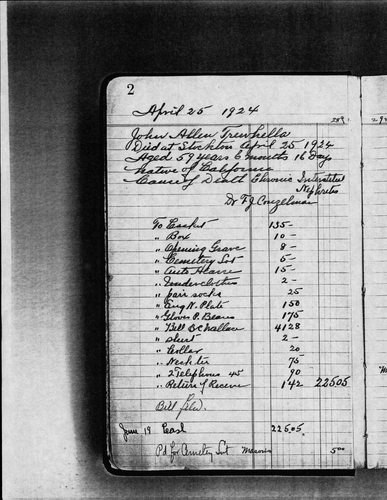 2
April 25 1924
287.
John Allen Trewhella
Died at Stockton April 25 1924
Aged 59 years 6 months 16 Days
Native of California
Cause of Death Chronic Interstitial
Nephretes
Dr F J Conzelman
To Casket 135 -
" Box 10 -
" Opening Grave 8 -
" Cemetery Lot 5 -
" Auto Hearse 15 -
" Underclothes 2 -
" pair socks 25
" Eng N. Plate 150
" Glover P. Bearers 175
" Bill B C Wallace 4128
" shirt 2 -
" Collar 20
" Neck tie 75
" 2 Telephone 45 90
" Return of Receive 142 22505
Bill filed.
June 19 Cash 22505
Pd for Cemetery Lot Masons 500